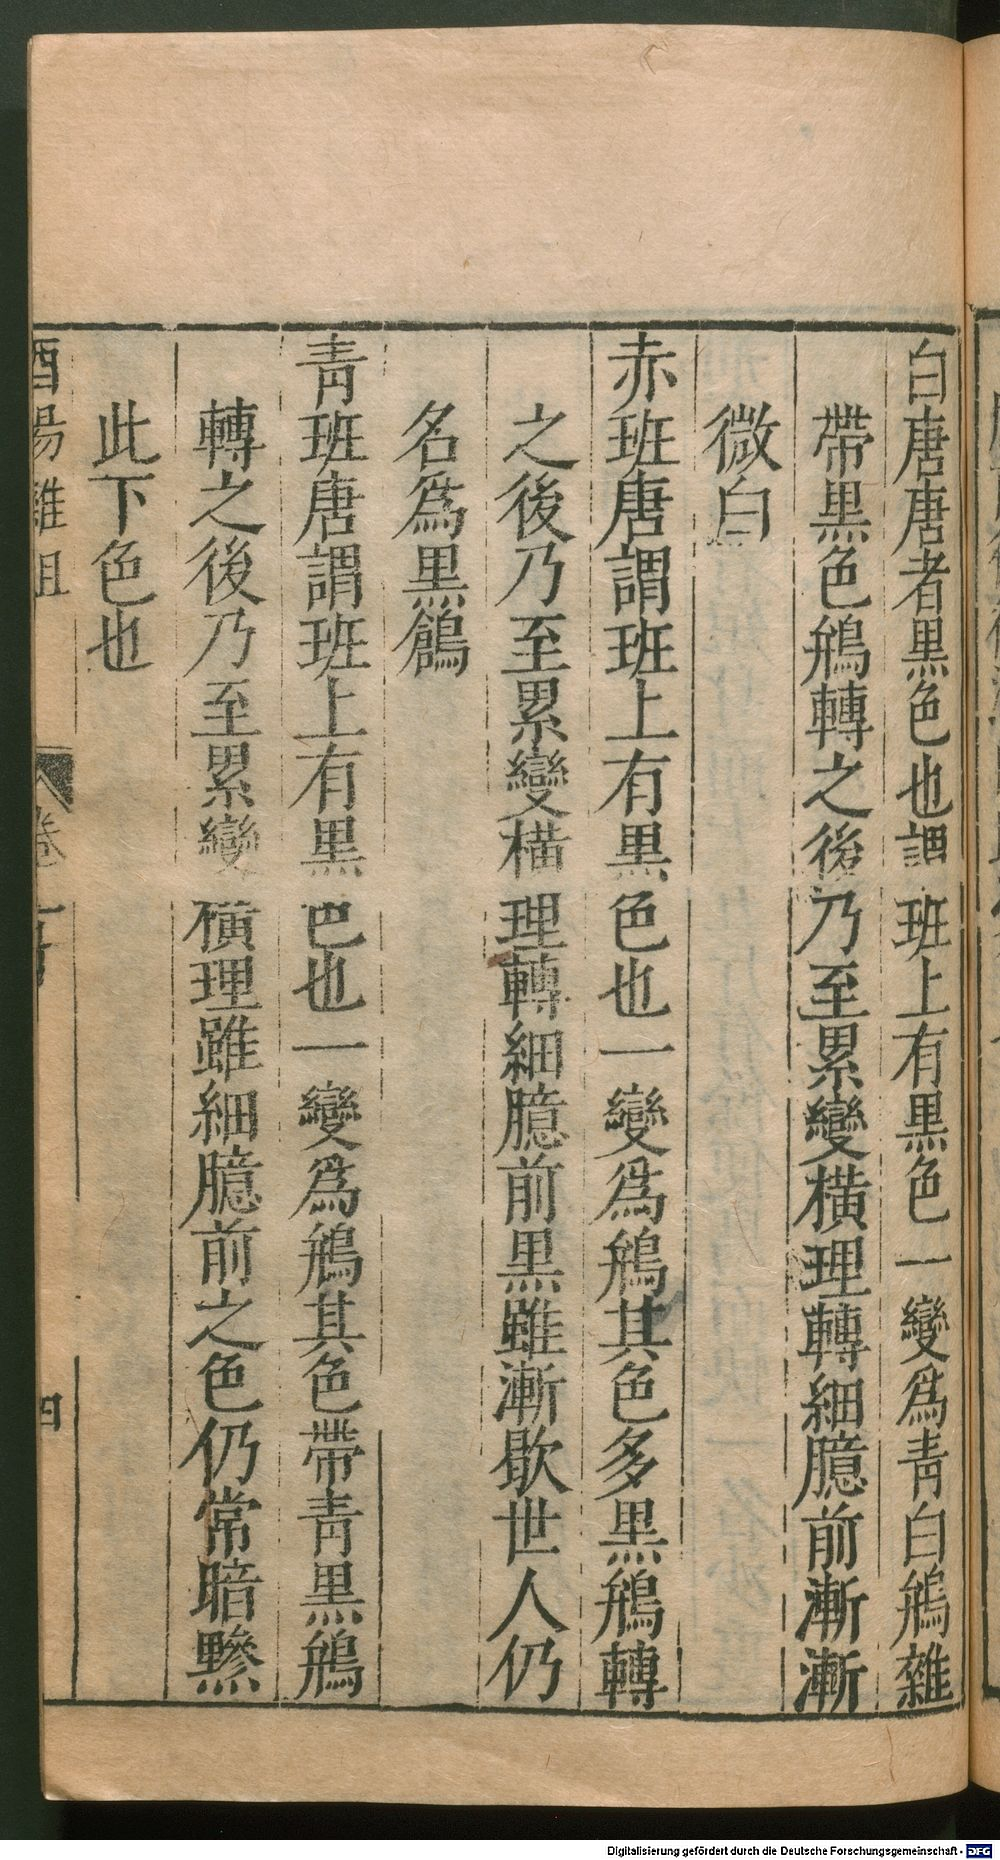 白唐唐者黒色也謂班上有黒色一變爲青白鴘雜
帶黒色鴘轉之後乃至累變橫理轉細臆前漸漸
微白
赤班唐謂班上有黒色也一變爲鴘其色多黒鴘轉
之後乃至累變橫理轉細臆前黒雖漸歇世人仍
名爲黒鶬
青班唐謂班上有黒色也一變爲鴘其色帶青黒鴘
轉之後乃至累變橫理雖細臆前之色仍常暗黲
此下色也
酉陽雜俎 卷二十 四
Digitalisierung gefördert durch die Deutsche Forschungsgemeinschaft - DFG